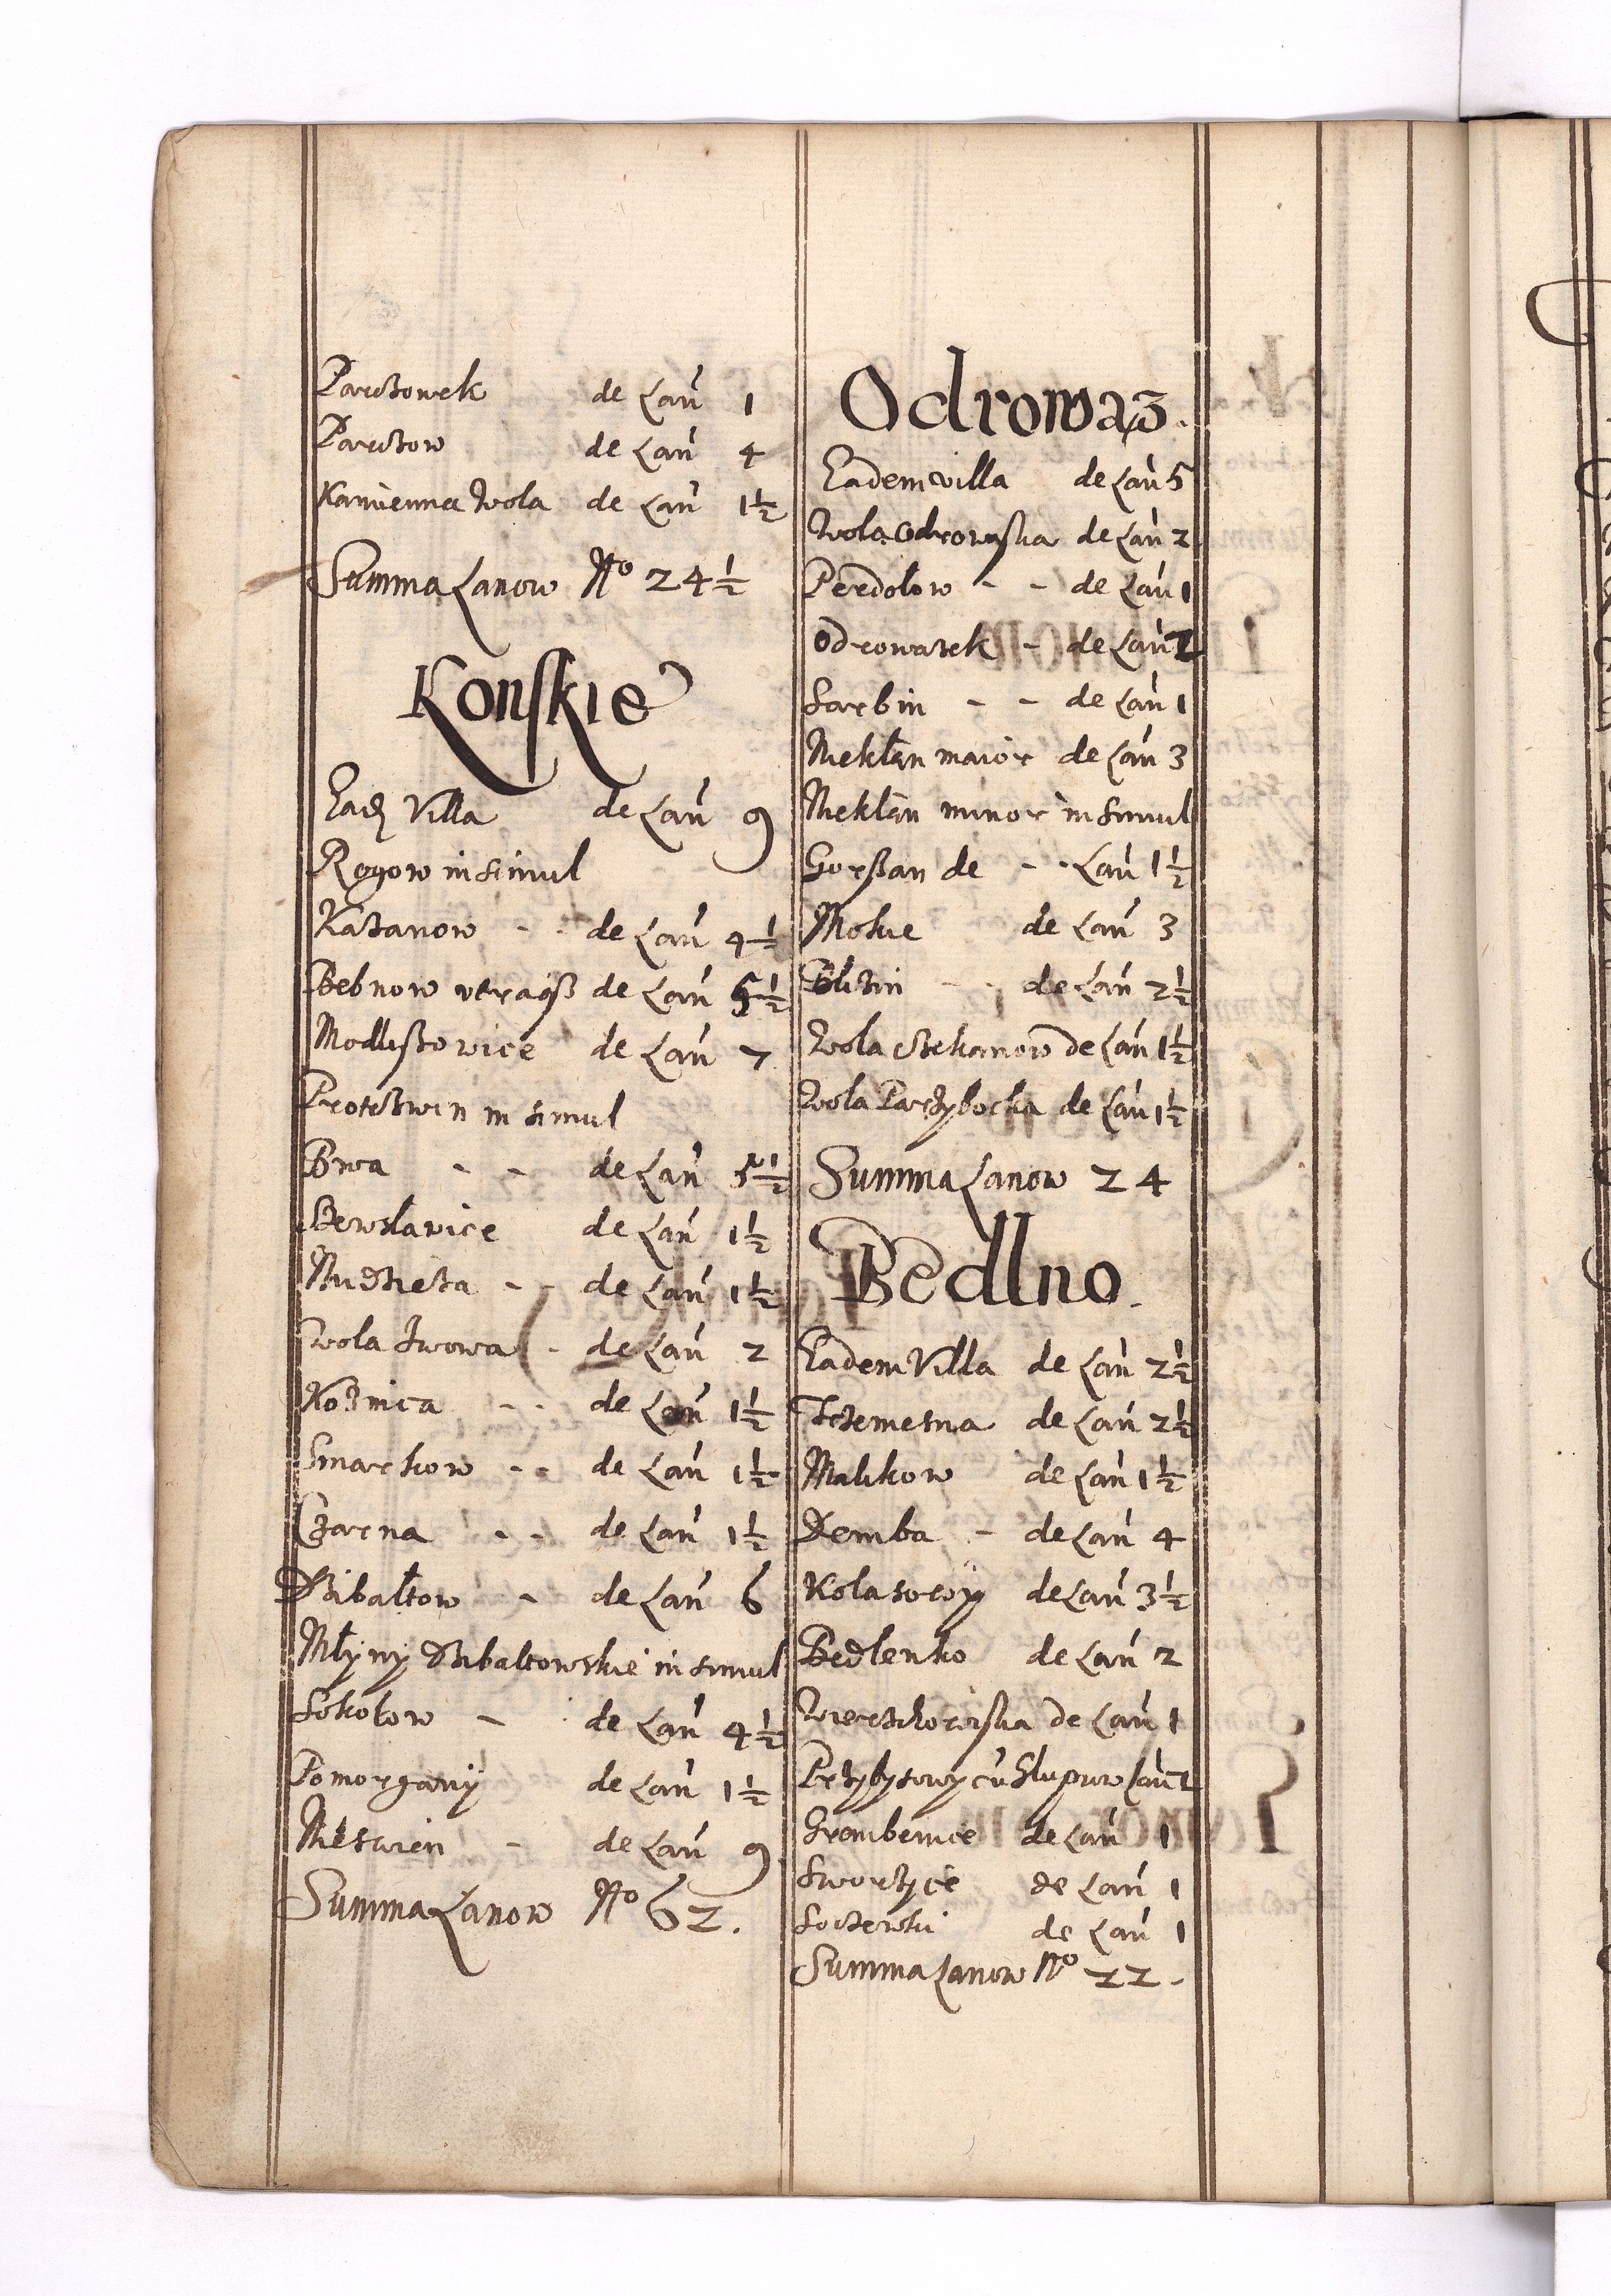 Parczowek de Lan 1
Parczow de Lan 4
Kamienna Wola de Lan 1½
Summa Lanow No 24½
Konskie
Ead Villa de Lan 9
Rogow in simul
Kazanow - - de Lan 4½
Bebnow utraqß de Lan 5½
Modlißowice de Lan 7
Proteßwin in simul
Brva - - de Lan 5½
Berwslavice de Lan 1½
Nudzieza - - de Lan 1½
Wola Jwowa - de Lan 2
Koznica - - de Lan 1½
Smarkow - - de Lan 1½
Czarna - - de Lan 1½
Dzibałtow - de Lan 6
Młyny Dzibaltowskie in simul
Sokołow - de Lan 4½
Pomorzany de Lan 1½
Mieswien - de Lan 9
Summa Lanow No 62.
Odrowąz.
Eadem villa de Lan 5
Wola Odrowąska de Lan 2
Perdołow - - de Lan 1
Odrowazek - de Lan 2
Sarbin - - de Lan 1
Niekłan maior de Lan 3
Niekłan minor in simul
Gorßan de - - Lan 1½
Mokre de Lan 3
Blizin - - de Lan 2½
Wola Siekanow de Lan 1½
Wola Parzyboska de Lan 1½
Summa Lanow 24
Bedlno.
Eadem Villa de Lan 2½
Trzemesna de Lan 2½
Malikow de Lan 1½
Demba - de Lan 4
Kolasoczy de Lan 3½
Bedlenko de Lan 2
Wierzchowiska de Lan 1
Przybysowy cu Slupuw Lan 2
Grombenice de Lan 1
Sworzyce de Lan 1
de Lan 1
Summa Lanow No 22.